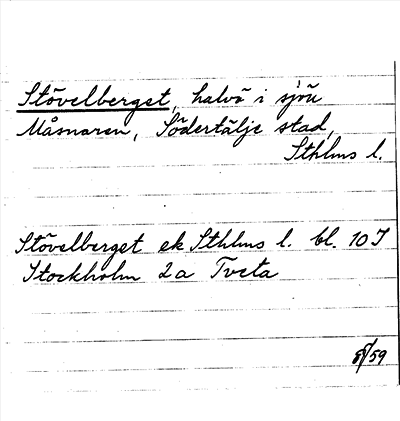 Stövelberget, halvö i sjön
Måsnaren, Södertälje stad,
Sthlms l.
Stövelberget ek Sthlms l. bl. 10 I
Stockholm 2 a Tveta
/59